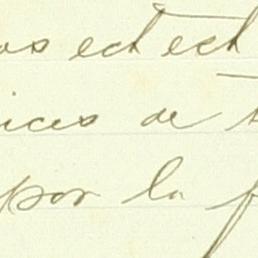 os ect ect
ices de
por la